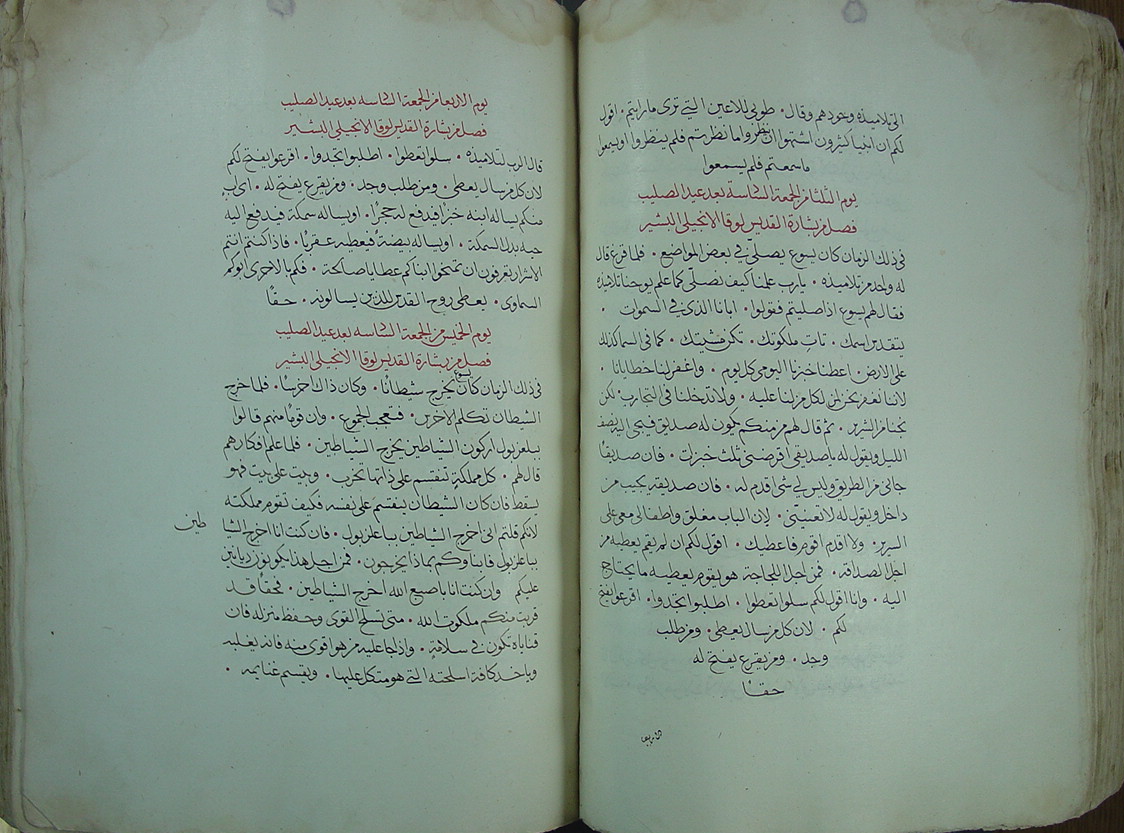 الى تلاميذه وحدهم وقال · طوبى للاعين التي ترى ما رايتم · اقول
لكم ان انبيا كثيرون اشتهوا ان ينظروا ما نظرتم فلم ينظروا او يسمعوا
ما سمعتم فلم يسمعوا
يوم الثلثا من الجمعة السادسه بعد عيد الصليب
فصل من بشارة القديس لوقا الانجيلي البشير
في ذلك الزمان كان يسوع يصلي في بعض المواضع · فلما فرغ قال
له واحد من تلاميذه · يارب علمنا كيف نصلي كما علم يوحنا تلاميذه
فقال لهم يسوع اذا صليتم فقولوا · ابانا الذي في السموات ·
يتقدس اسمك · تات ملكوتك · تكن مشيتك · كما في السما كذلك
على الارض · اعطنا خبزنا اليومي كل يوم · واغفر لنا خطايانا ·
لاننا نغفر نحن لكل من لنا عليه · ولا تدخلنا في التجارب · لكن
نجنا من الشرير · ثم قال لهم من منكم يكون له صديق فيجي اليه نصف
الليل ويقول له يا صديقي اقرضني ثلث خبزت · فان صديقا
جاني من الطريق وليس لي شي اقدم له · فان صديقه يجيب من
داخل ويقول له لا تعنيني · لان الباب مغلق واطفالي معي على
السرير · ولا اقدم اقوم فاعطيك · اقول لكم ان لم يقم يعطيه من
اجل الصداقه · فمن اجل اللجاجة هو يقوم يعطيه ما يحتاج
اليه · وانا اقول لكم سلوا تعطوا · اطلبوا تجدوا · اقرعوا يفتح
لكم · لان كل من سال يعطى · ومن طلب
وجد · ومن يقرع يفتح له
حقا
يوم الاربعا من الجمعة السادسه بعد عيد الصليب
فصل من بشارة القديس لوقا الانجيلي البشير
قال الرب لتلاميذه · سلوا تعطوا · اطلبوا تجدوا · اقرعوا يفتح لكم
لان كل من سال يعطى · ومن طلب وجد · ومن يقرع يفتح له · اي اب
منكم يساله ابنه خبزا فيدفع له حجرا · او يساله سمكة فيدفع اليه
حيه بدل السمكة · او يساله بيضة فيعطيه عقربا · فاذا كنتم انتم
الاشرار تعرفون ان تمنحوا ابناكم عطايا صالحة · فكم بالاحرى ابوكم
السماوي · يعطي روح القدس للذين يسالونه · حقا
يوم الخميس من الجمعة السادسه بعد عيد الصليب
فصل من بشارة القديس لوقا الانجيلي البشير
في ذلك الزمان كان يسوع يخرج شيطانا · وكان ذاك اخرسا · فلما خرج
الشيطان تكلم الاخرس · فتعجب الجموع · وان قوما منهم قالوا
ببلعزبول اركون الشياطين يخرج الشياطين · فلما علم افكارهم
قال لهم · كل مملكة تنقسم على ذاتها تخرب · وبيت على بيت فهو
يسقط فان كان الشيطان ينقسم على نفسه فكيف تقوم مملكته
لانكم قلتم اني اخرج الشياطين بباعلزبول · فان كنت انا اخرج الشيا
طين
بباعلزبول فابناوكم بماذا يخرجون · فمن اجل هذا يكونون ديانين
عليكم وان كنت انا باصبع الله اخرج الشياطين · فحقا قد
قربت منكم ملكوت الله · متى تسلح القوي وحفظ منزله فان
قناياه تكون في سلامه · واذا جا عليه من هو اقوى منه فانه يغلبه
وياخد كافة اسلحته التي هو متكل عليها · ويقسم غنايمه ·